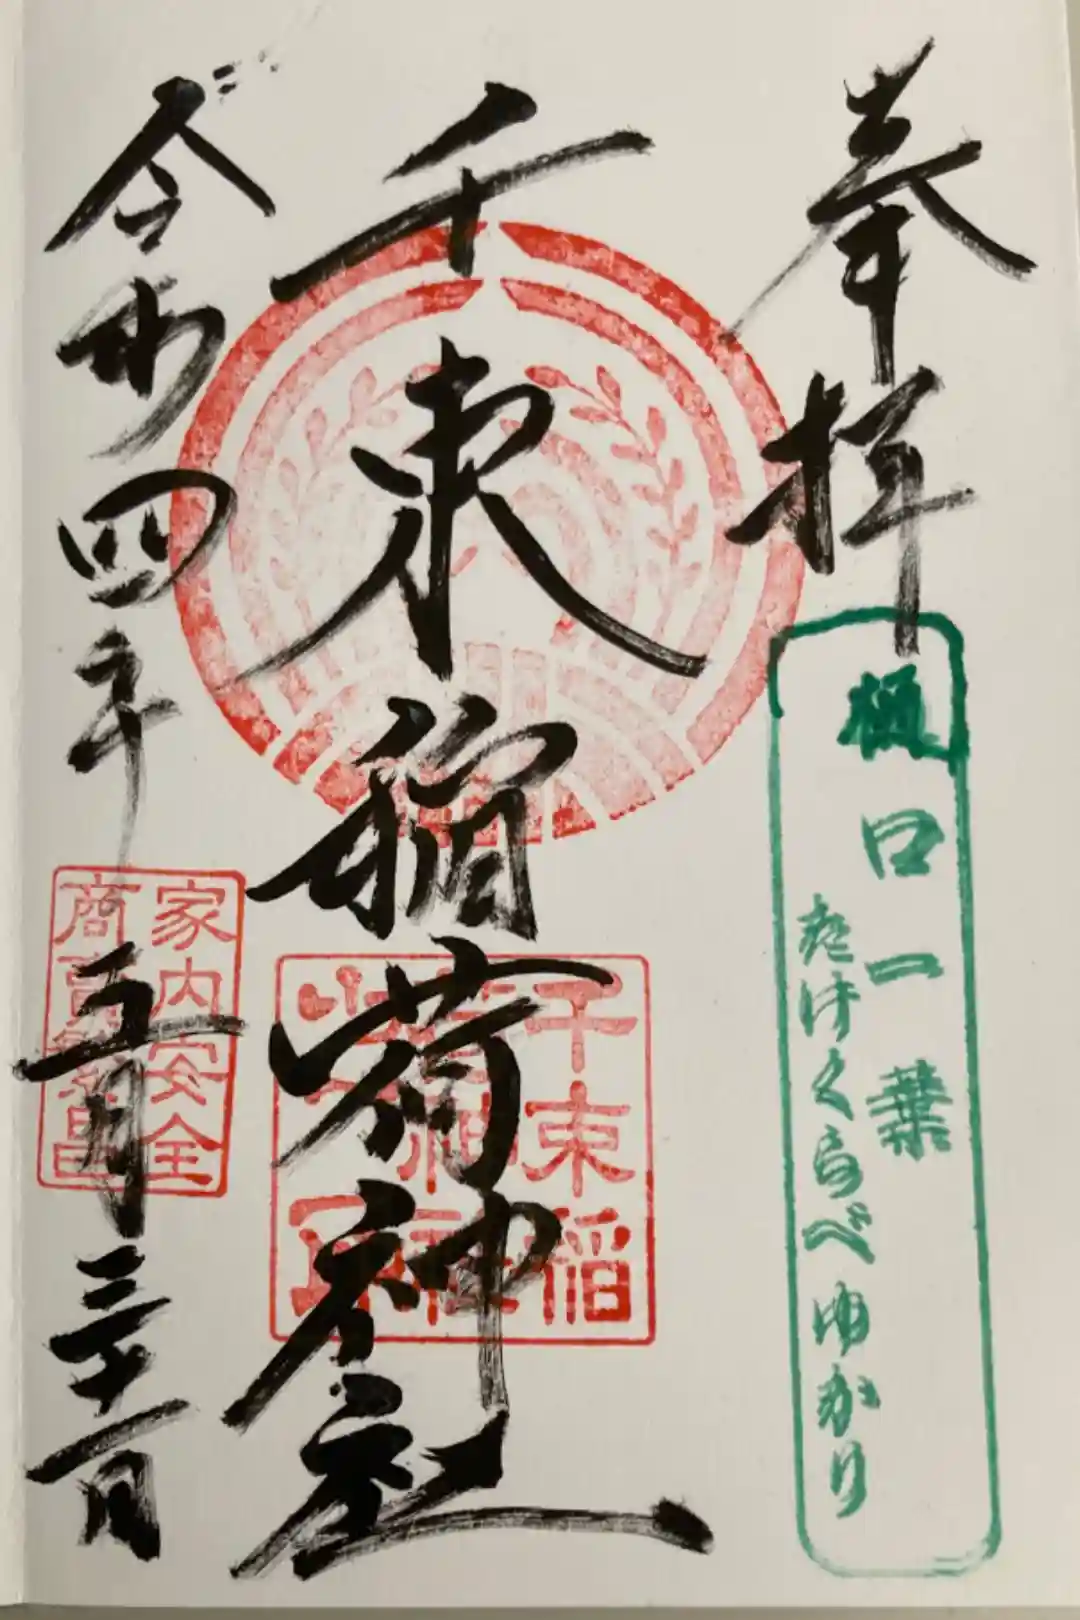 奉拝
樋口一葉
たけくらべゆかり
千束稲荷神社
千束稲
荷神社
令和四年五月三十一日
家内安全
商売繁昌